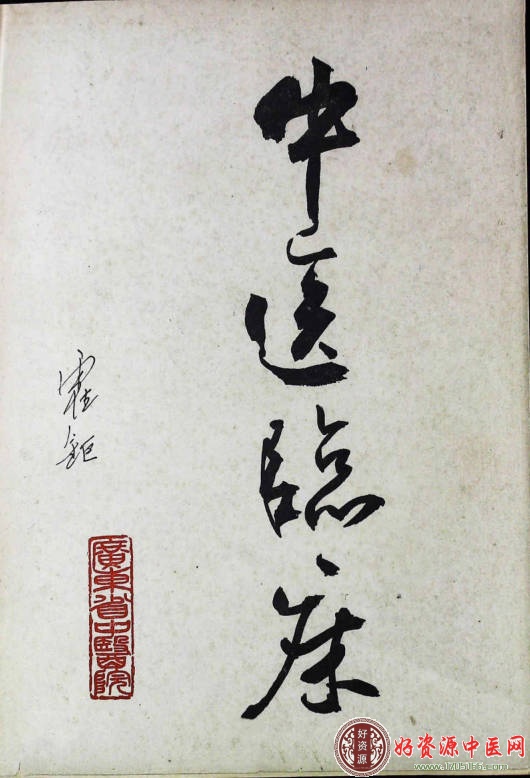 中医临床
霍鉅
廣東省中醫院
好资源
好资源中医网